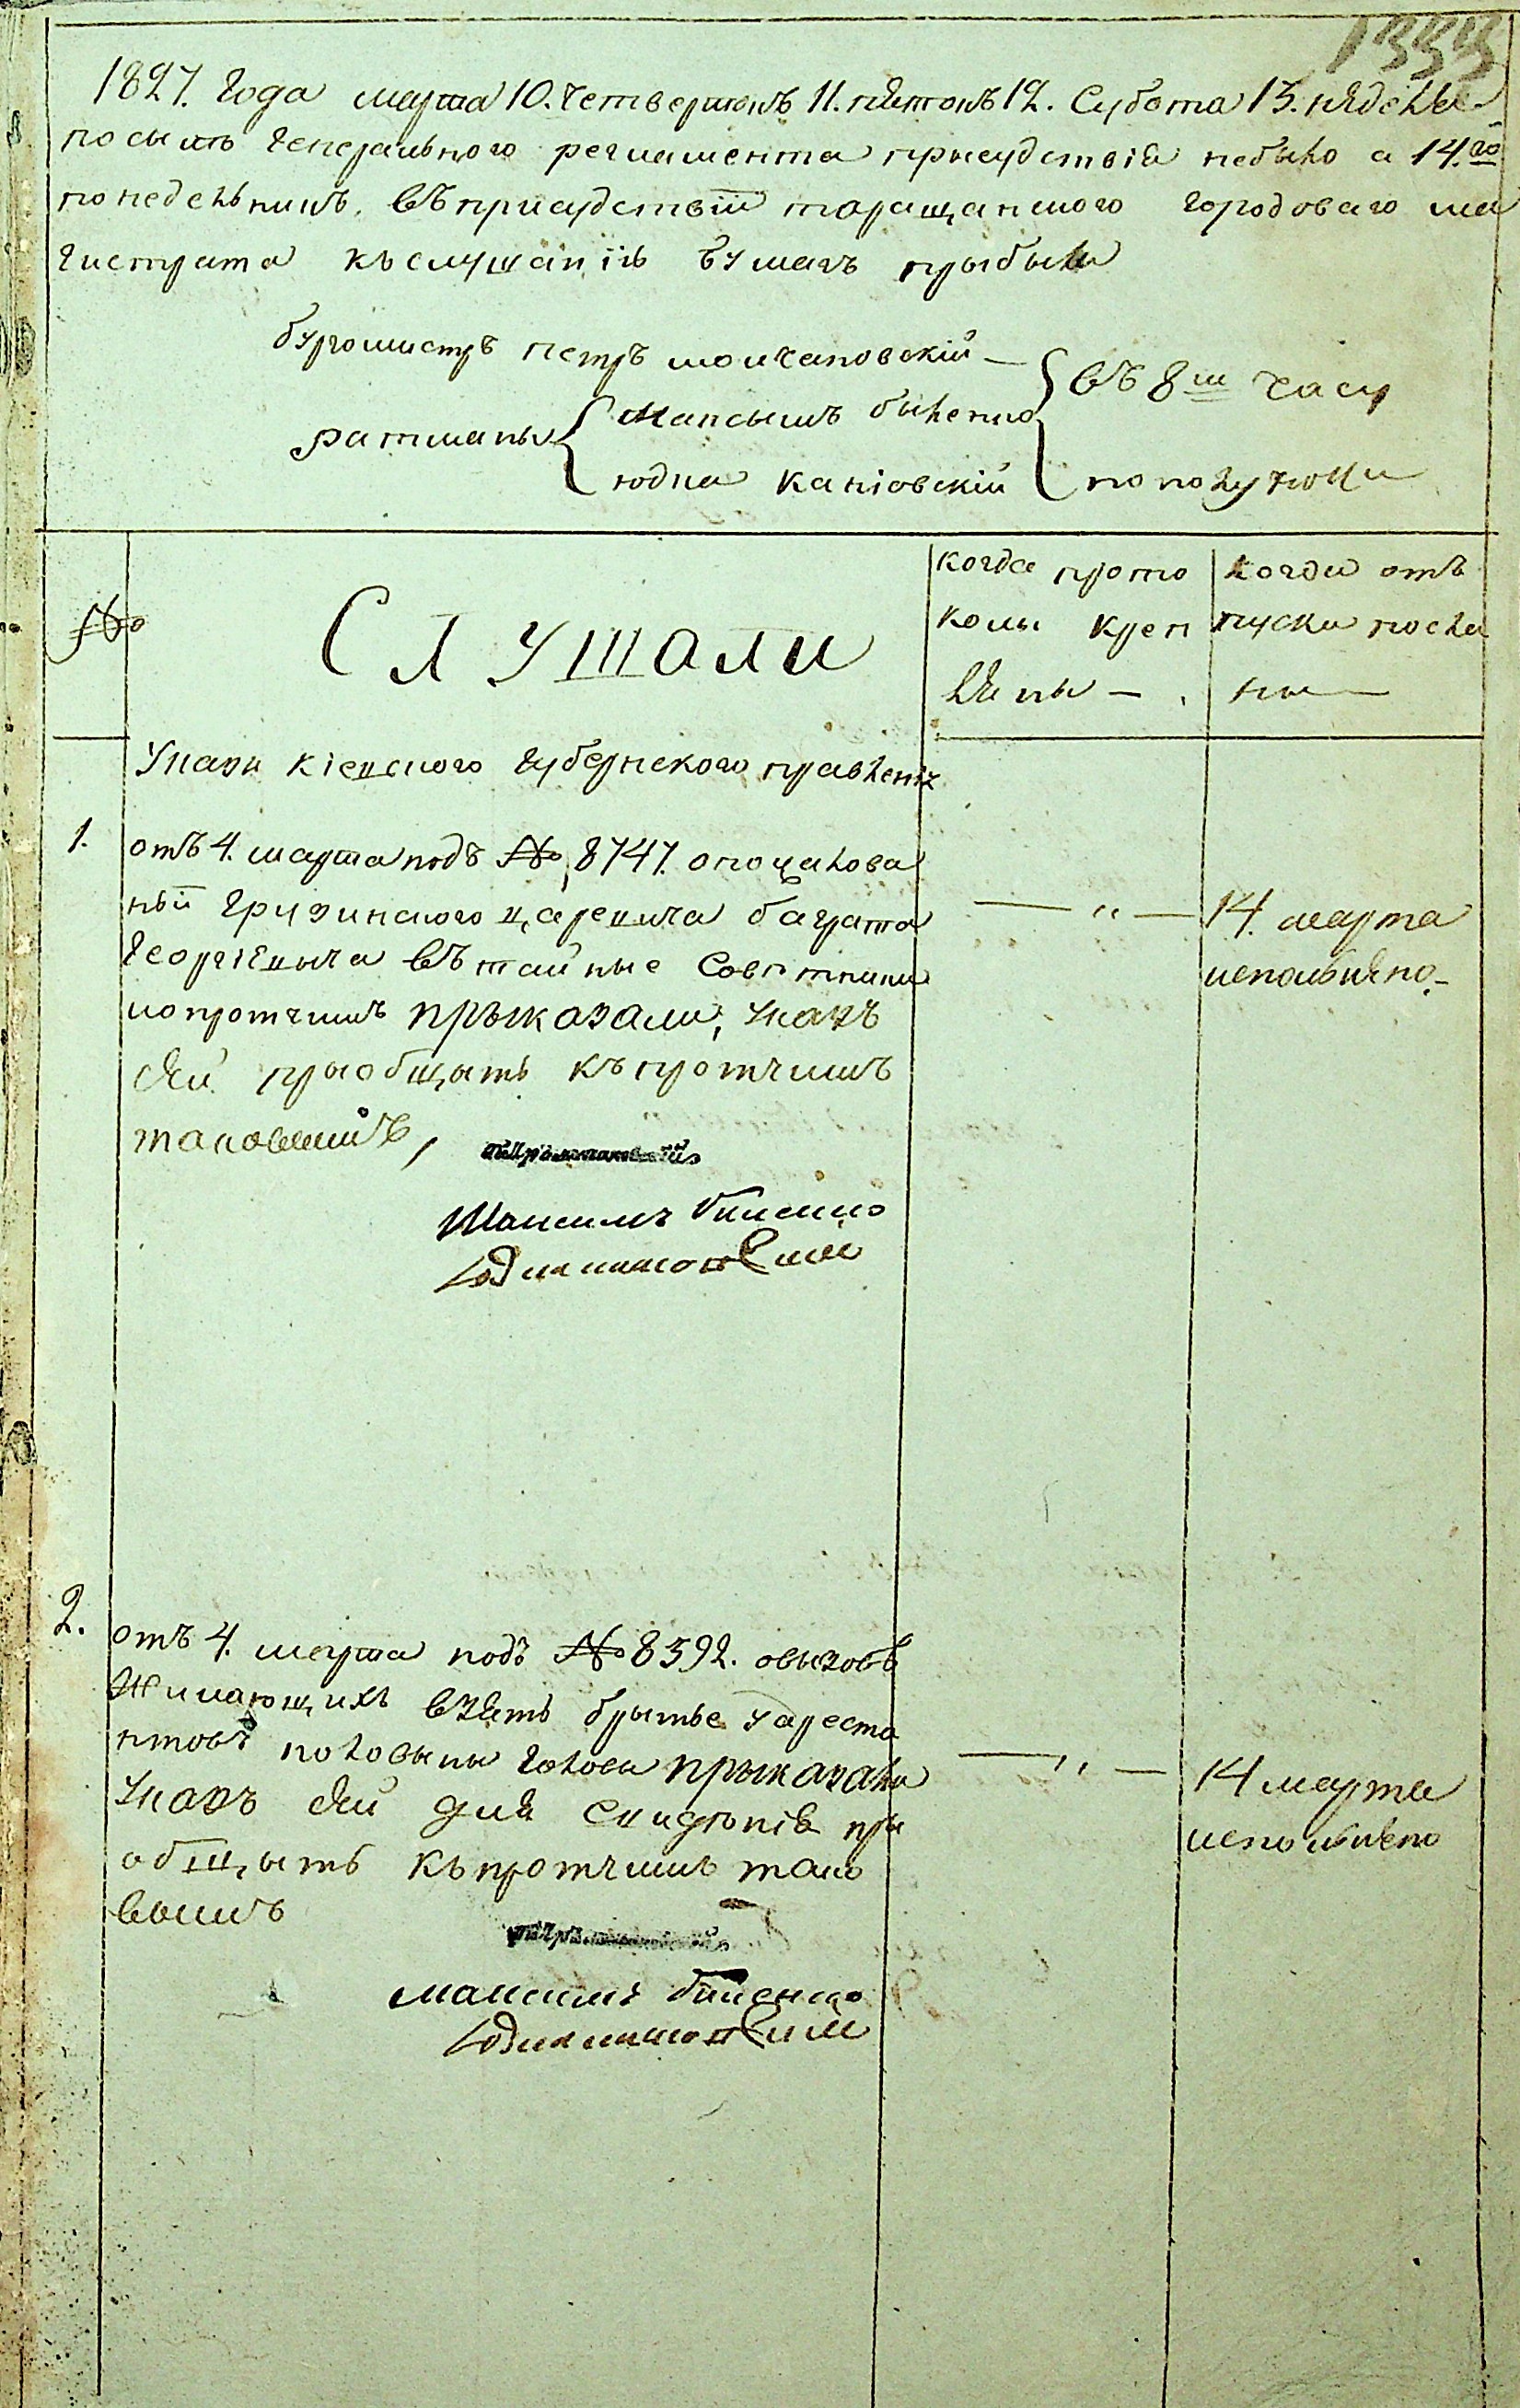 1333
1827. Года марта 10. четвертокъ 11. пятокъ 12. Субота 13. нядѣлѣ
по сылѣ Генерального регламента прысудствія небыло а 14.го
понедельникъ. въ присудствіи таращанского городоваго ма
гистрата къ слушанію бумагъ прыбыли
бургомистръ петръ молчановскій —
въ 8м часу
ратманы
Максымъ быленко
юдка каніовскій
по полуночи
№
Слушали
когда прото
колы креп
ляны — .
когда отъ
пуски посла
ны —
Указы кіевского Губернского правленія
1.
отъ 4. марта подъ № 8747. о пожалова
ніи грузинского царевича баграта
Георгіевыча въ тайные Советники
и о протчимъ прыказали, указъ
сей прыобщыть къ протчимъ
таковымъ,
— " —
14. марта
исполняно —
Максимъ биленко
2.
отъ 4. марта подъ № 8592. о вызовѣ
Жилающихъ взять брытье уареста
нтовъ половыны головы прыказали
Указъ сей для Свидѣнія при
общыть къ протчимъ тако
вымъ
— " —
14 марта
исполняно
максимъ биленко